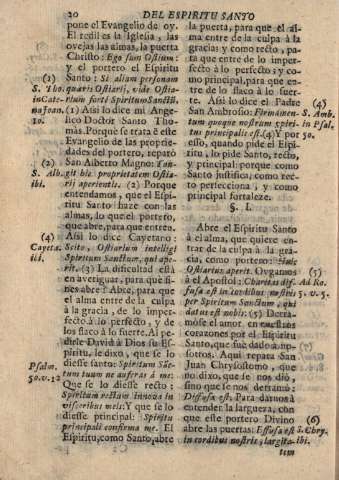 20 DEL ESPIRITU SANTO
pone el Evangelio de oy.
El redil es la Iglesia, las
ovejas las almas, la puerta
Christo: Ego sum Ostium:
y el portero el Espiritu
Santo: Si aliam personam
quaris Ostiarij, vide Ostia-
rium forte Spiritum Sanctũ.
(1) Assi lo dice mi Ange-
lico Doctor Santo Tho-
màs. Porque se trata ẽ este
Evangelio de las proprie-
dades del portero, reparò
San Alberto Magno: Tan-
git hic proprietatem Ostia-
rij aperientis. (2) Porque
entendamos, que el Espi-
ritu Santo haze con las
almas, lo que el portero,
que abre, para que entren.
Assi lo dice Cayetano:
Scito, Ostiarium intelligi
Spiritum Sanctum, qui ape-
rit. (3) La dificultad està
en averiguar, para què fi-
nes abre? Abre, para que
el alma entre de la culpa
à la gracia, de lo imper-
fecto à lo perfecto, y de
lo flaco à lo fuerte. Al pe-
dirle David à Dios su Es-
piritu, le dixo, que se lo
diesse santo: Spiritum Sãc-
tum tuum ne auferas à me:
Que se lo diesse recto:
Spiritum rectum innova in
visceribus meis: Y que se lo
diesse principal: Spiritu
principali confirma me. El
Espiritu, como Santo, abre
(2)
S. Tho.
in Cate-
na Joan.
10.
(2)
S. Alb.
ibi.
(4)
Cayeta.
ibi,
Psalm.
50.v.12
la puerta, para que el al-
ma entre de la culpa à la
gracia: y como recto, pa-
ra que entre de lo imper-
fecto à lo perfecto; y co-
mo principal, para que en-
tre de lo flaco à lo fuer-
te. Assi lo dice el Padre
San Ambrosio: Firmamen-
tum quoque nostrum spiri-
tus principalis est. (4) Y por
esso, quando pide el Espi-
ritu, lo pide Santo, recto,
y principal: porque como
Santo justifica; como rec-
to perfecciona, y como
principal fortaleze.
§. I.
Abre el Espiritu Santo
à el alma, que quiere en-
trar de la culpa à la gra-
cia, como portero: Huic
Ostiarius aperit. Oygamos
à el Apostol: Charitas dif-
fusa est in cordibus nostris
per Spiritum Sanctum, qui
datus est nobis. (5) Derra-
mòse el amor en nuestros
corazones por el Espiritu
Santo, que fue dado à no-
sotros. Aqui repara San
Juan Chrysostomo, que
no dixo, que se nos diò,
sino que se nos derramò:
Diffusa est. Para darnos à
entender la largueza, con
que este portero Divino
abre las puertas: Effusa est
in cordibus nostris, largita-
tem
(4)
S. Amb.
in Psal.
50.
(5)
Ad Ro.
5. v. 5.
(6)
S. Chry.
ibi.